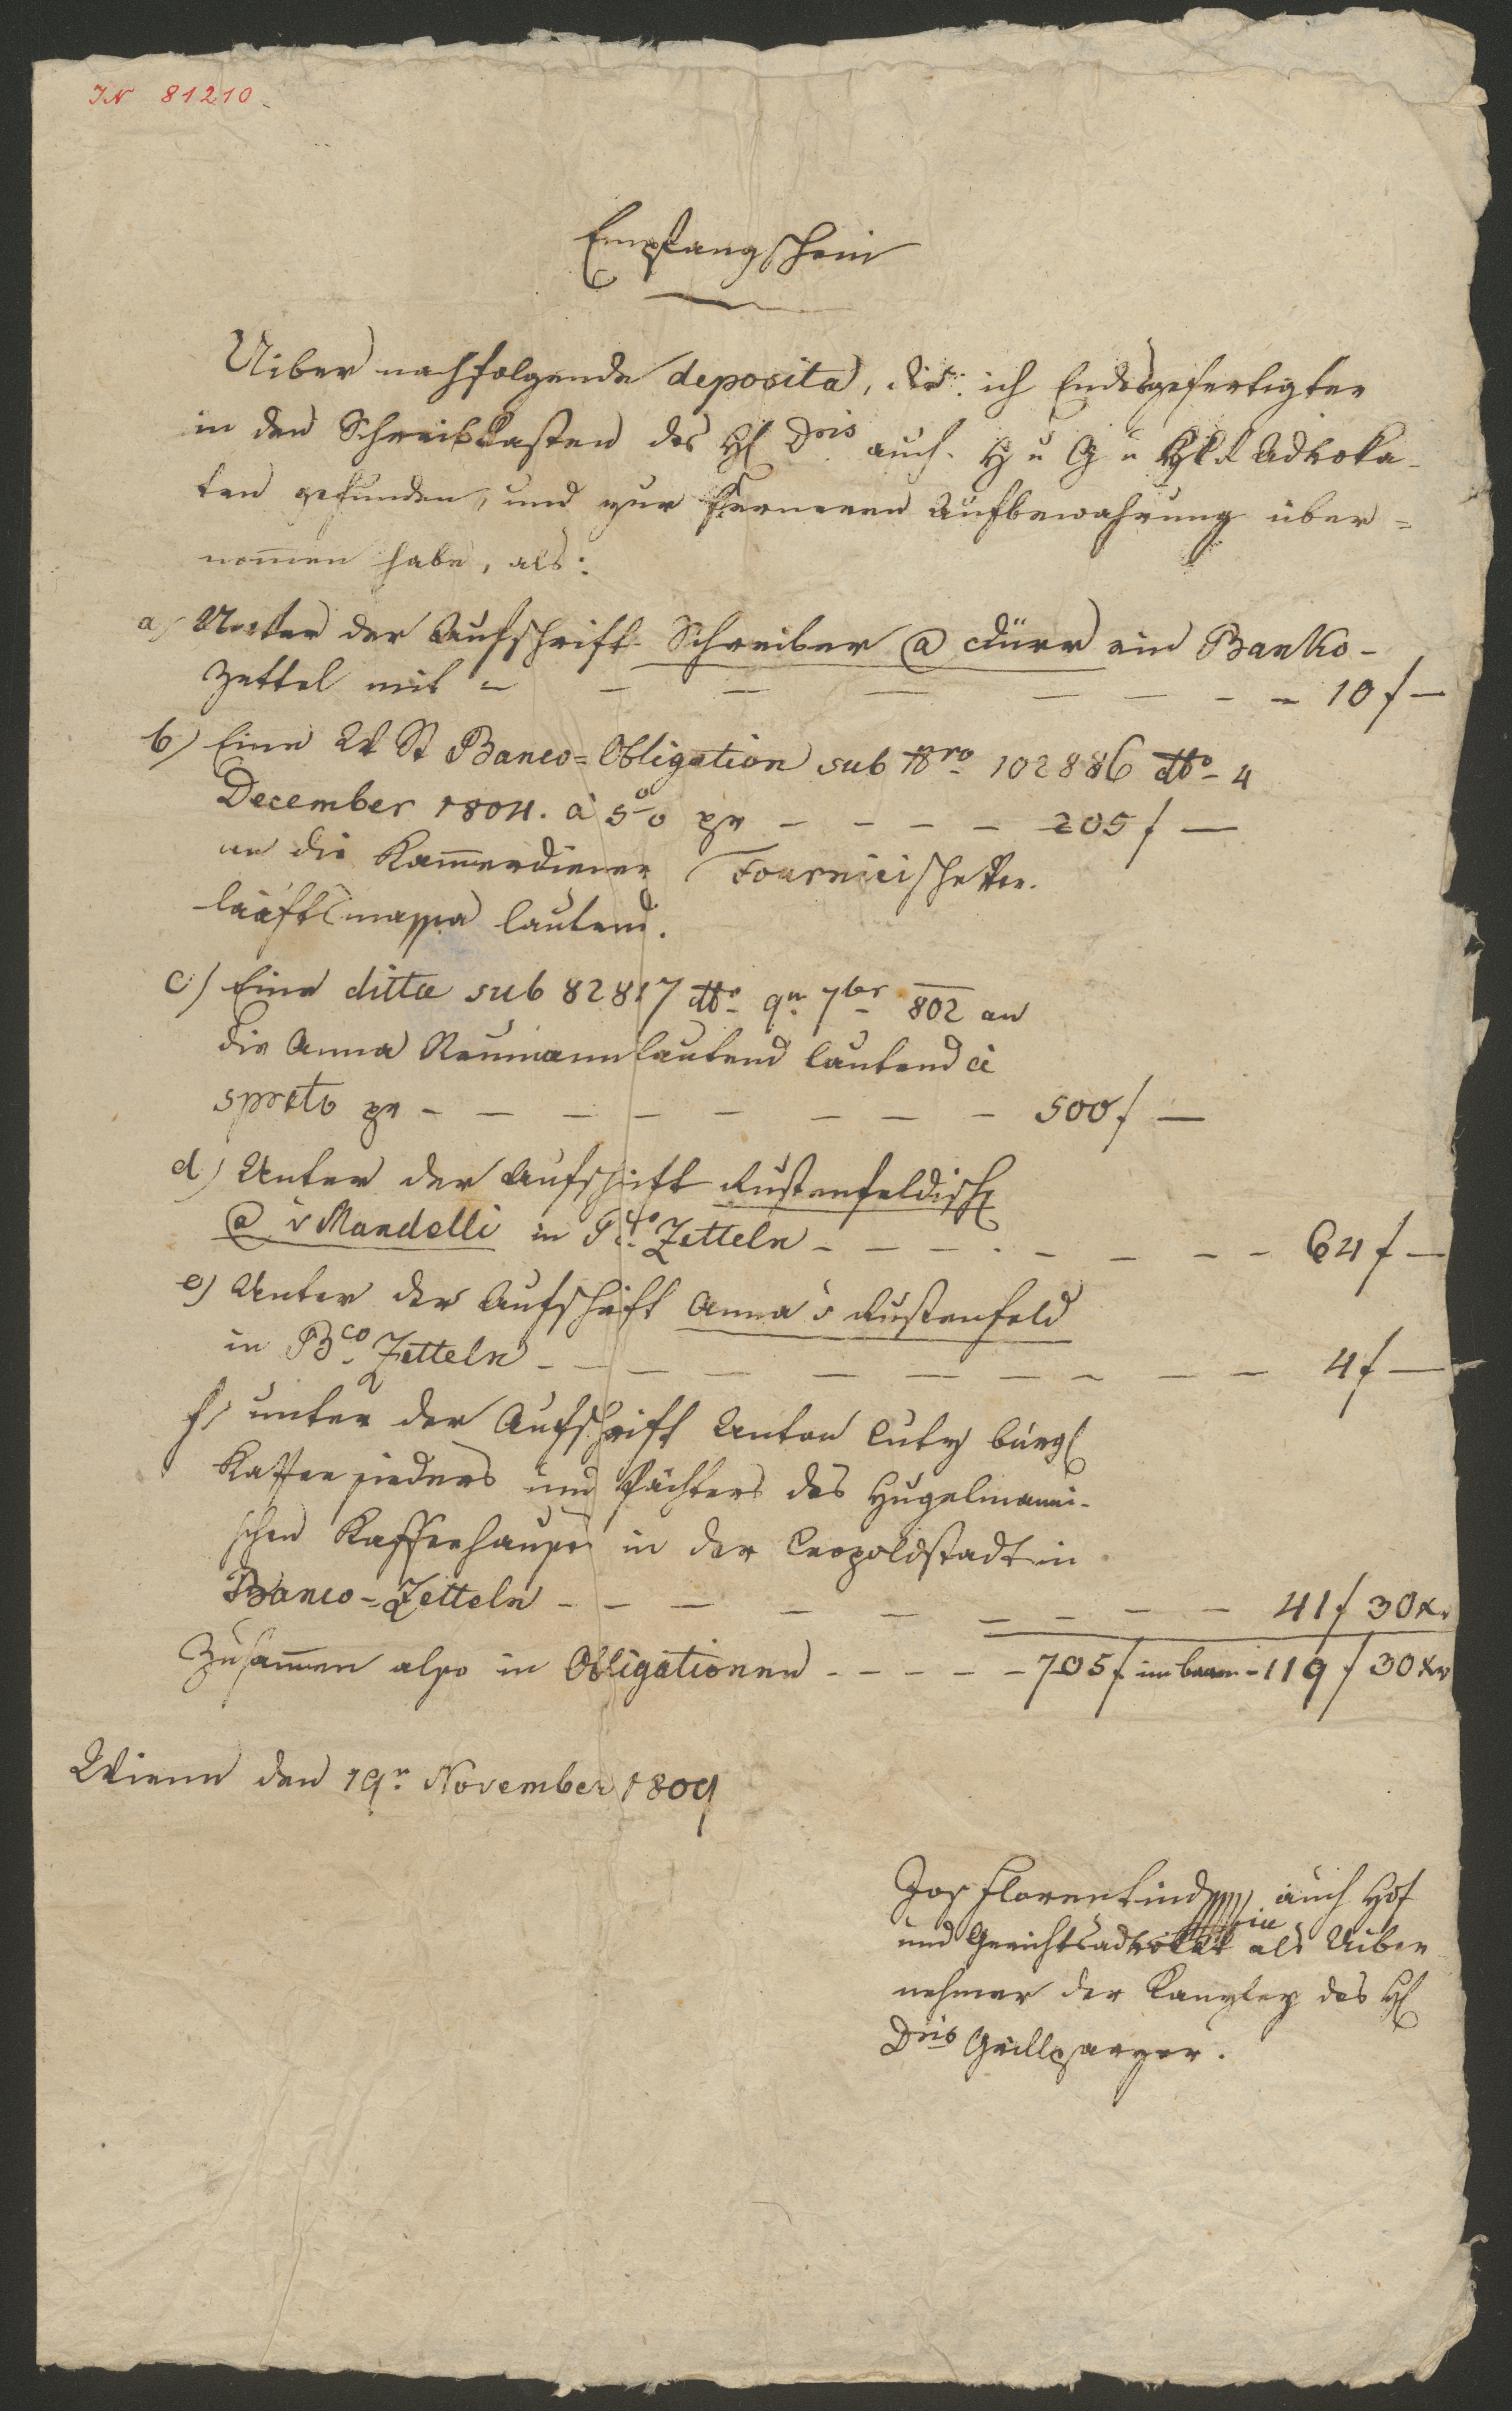 IN 81210
Empfangschein
Uiber nachfolgende deposita, die ich Endesgefertigter
in den Schreibkasten des H Dris auch H u G u Advoka-
ten gefunden, und zur ferneren Aufbewahrung über=
nom̄en habe, als:
a) Unter der Aufschrift Schreiber @ Dürr ein Banko-
Zettel mit - - - - - - - - 10 f —
b) Eine W St Banco=Obligation sub Nro 102886 dto 4
December 1804. à 5 %  pr - - - - - 205 f —
an die Kam̄erdiener Fournieische Ver-
laafts massa lautend.
c) Eine ditto sub 82817 dto 9n 7ber 802 an
die Anna Neumann lautend lautend à
5 prcto pr - - - - - - - - 500 f —
d) Unter der Aufschrift Rustenfeldisch
@ v Mandelli in Bco Zetteln - - - - - - - - 64 f —
e) Unter der Aufschrift Anna v Rustenfeld
in Bco Zetteln - - - - - - - - - 4 f —
f) unter der Aufschrift Anton Curty bürgl
Kaffee sieders und Pächters des Hugelmanni-
schen Kaffeehauses in der Leopoldstadt in
Banco=Zetteln - - - - - - - - - 41 f 30 xr
Zusam̄en also in Obligationen - - - - - 705 f im baaren - 119 f 30 xr
Wienn den 19n November 1809
Jos Florentin auch Hof
und Gerichtsadvokat als Uiber
nehmer der Kanzley des H
Dris Grillparzer.